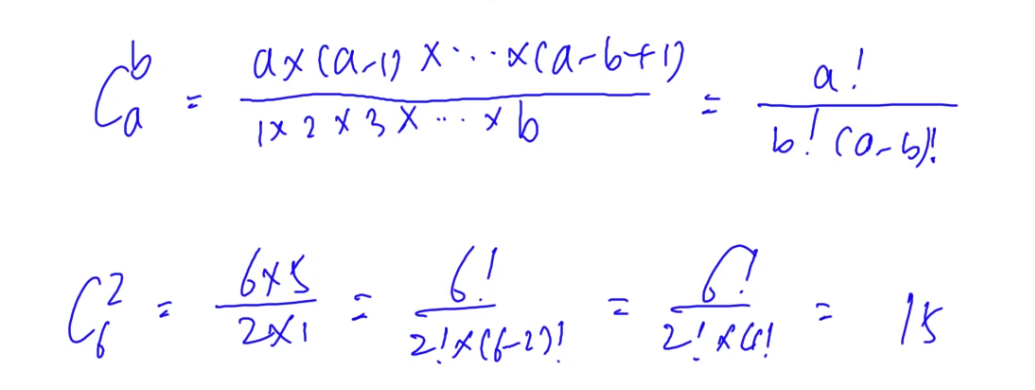 C_a^b = \frac{a×(a-1)×···×(a-b+1)}{1×2×3×···×b} = \frac{a!}{b!(a-b)!}
C_6^2 = \frac{6×5}{2×1} = \frac{6!}{2!×(6-2)!} = \frac{6!}{2!×4!} = 15